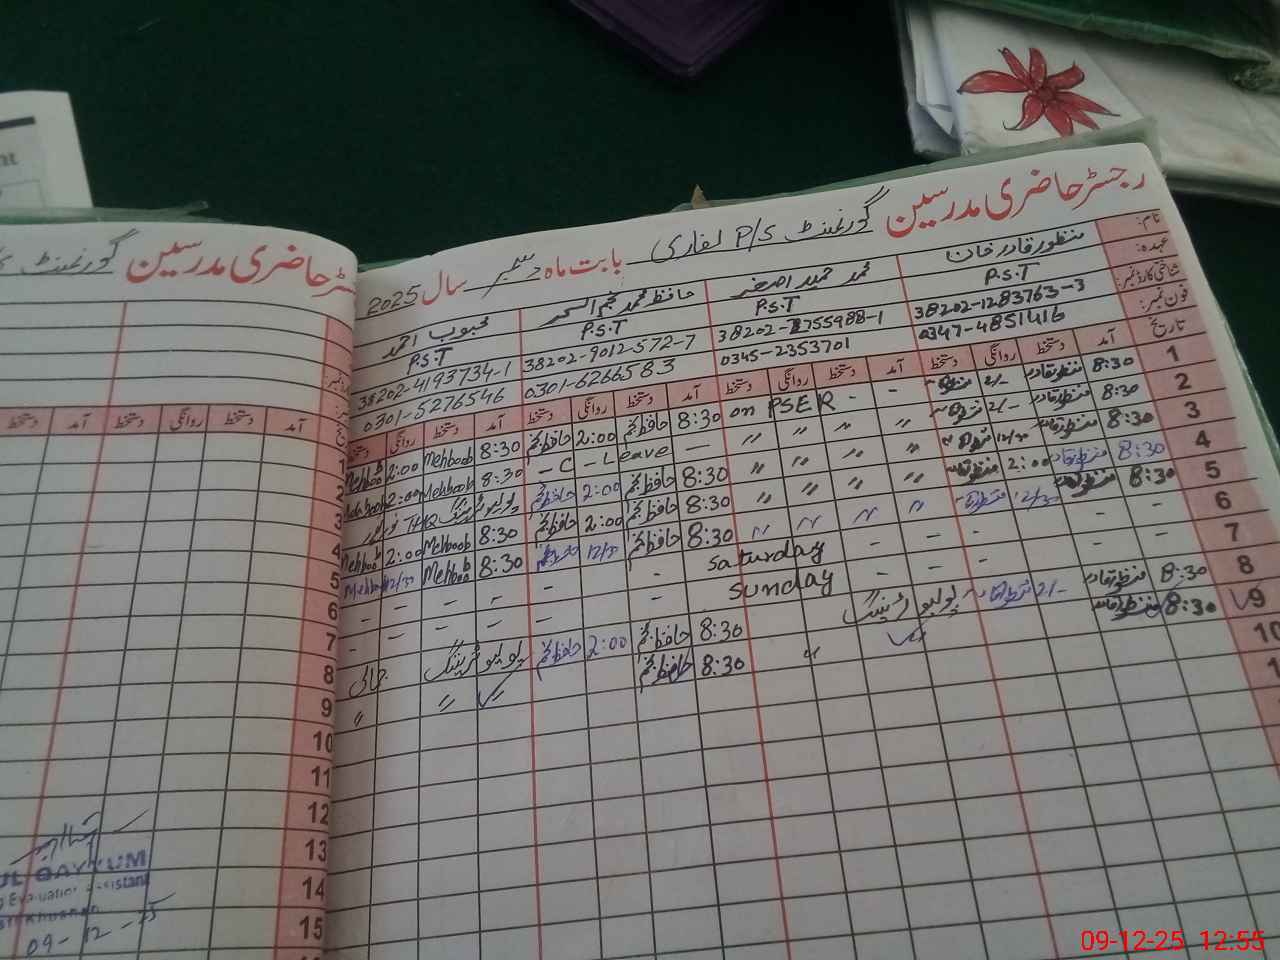 رجسٹر حاضری مدرسین گورنمنٹ P/S لغاری بابت ماہ دسمبر سال 2025
نام: منظور قادر خان محمد حمید اصغر حافظ محمد نجم السحر محبوب احمد
عہدہ: P.S.T P.S.T P.S.T P.S.T
شناختی کارڈ نمبر: 38202-1283763-3 38202-2755988-1 38202-9012572-7 38202-4193734-1
فون نمبر: 0347-4851416 0345-2353701 0301-6266583 0301-5276546
تاریخ آمد دستخط روانگی دستخط آمد دستخط روانگی دستخط آمد دستخط روانگی دستخط آمد دستخط روانگی دستخط
1 8:30 منظور قادر 2/- - - on PSER 8:30 حافظ نجم 2:00 حافظ نجم 8:30 Mehboob 2:00 Mehboob
2 8:30 منظور قادر 2/- " " " " - C - Leave - 8:30 Mehboob 2:00 Mehboob
3 8:30 منظور قادر 12/30 " " " " 8:30 حافظ نجم 2:00 حافظ نجم پولیو ٹریننگ THQ
4 8:30 منظور قادر 2:00 " " " " 8:30 حافظ نجم 2:00 حافظ نجم 8:30 Mehboob 2:00 Mehboob
5 8:30 منظور قادر 12/30 " " " " 8:30 حافظ نجم 12/30 8:30 Mehboob 12/30 Mehboob
6 - - - - - Saturday - - - - - -
7 - - - - - Sunday - - - - - -
8 8:30 منظور قادر 2/- پولیو ٹریننگ 8:30 حافظ نجم 2:00 حافظ نجم پولیو ٹریننگ
9 8:30 منظور قادر " 8:30 حافظ نجم " "
10
11
12
13
14
15
رجسٹر حاضری مدرسین گورنمنٹ
آمد دستخط روانگی دستخط آمد دستخط
UL QAYYUM
Evaluation Assistant
09-12-25
nt
09-12-25 12:55